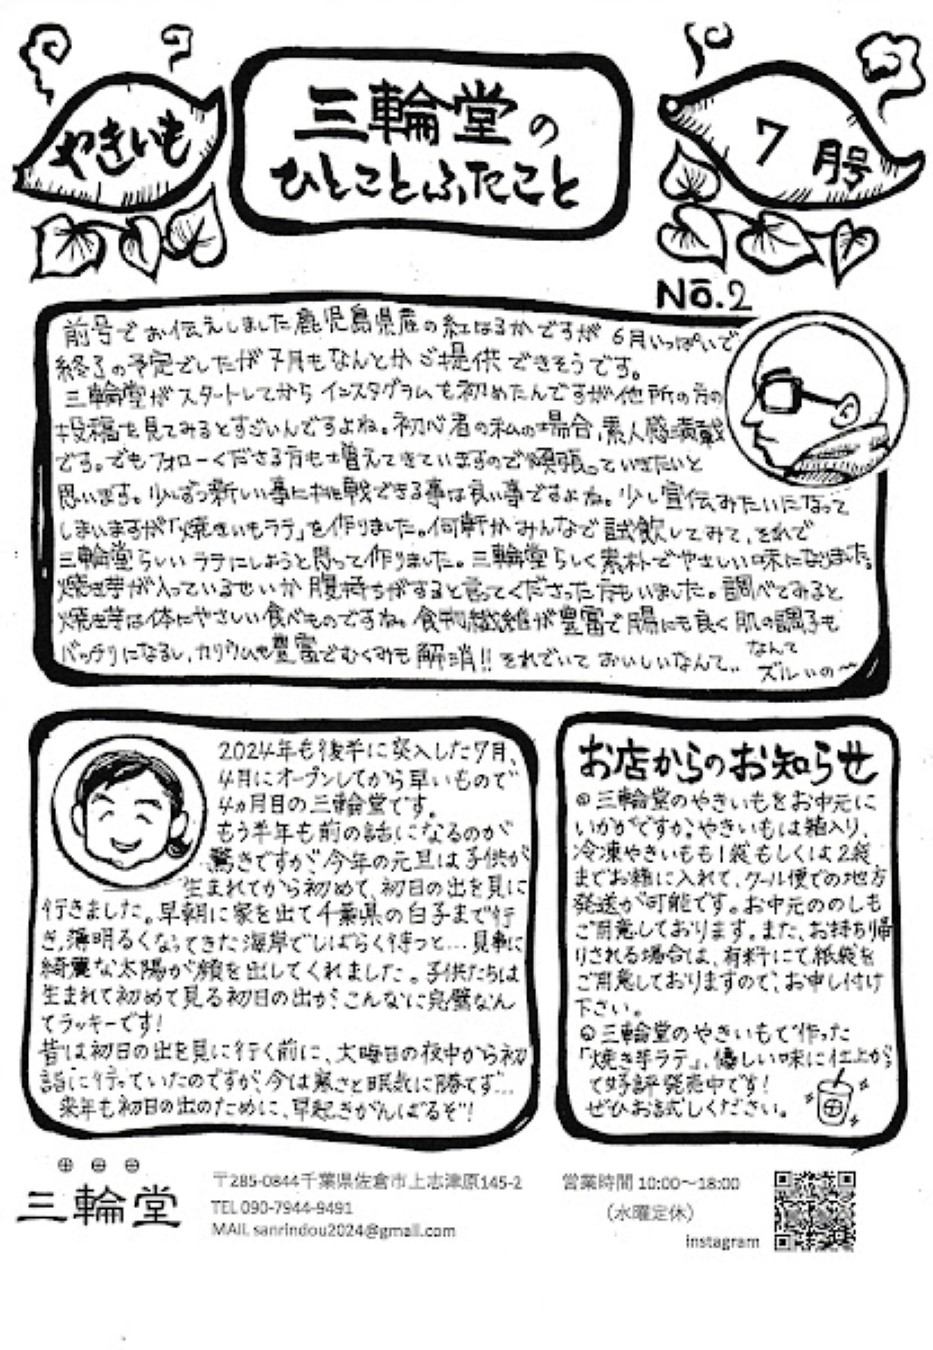 やきいも
三輪堂の
ひとことふたこと
7月号
No.2
前号でお伝えしました鹿児島県産の紅はるかですが6月いっぱいで
終了の予定でしたが7月もなんとかご提供できそうです。
三輪堂がスタートしてからインスタグラムを初めたんですが他所の方の
投稿を見てみるとすごいんですよね。初心者の私の場合、素人感満載
です。でもフォローくださる方も増えてきていますので頑張っていきたいと
思います。少しずつ新しい事に挑戦できる事は良い事ですよね。少し宣伝みたいになって
しまいますが「焼きいもラテ」を作りました。何軒かみんなで試飲してみて、それで
三輪堂らしいラテにしようと思って作りました。三輪堂らしく素朴でやさしい味になりました。
焼き芋が入っているせいか腹持ちがすると言ってくださった方もいました。調べてみると
焼き芋は体にやさしい食べものですね。食物繊維が豊富で腸にも良く肌の調子も
バッチリになるし、カリウムも豊富でむくみも解消!!それでいておいしいなんて..
なんて
ズルいの〜
2024年も後半に突入した7月、
4月にオープンしてから早いもので
4ヵ月目の三輪堂です。
もう半年も前の話になるのが
驚きですが、今年の元旦は子供が
生まれてから初めて、初日の出を見に
行きました。早朝に家を出て千葉県の白子まで行
き、薄明るくなってきた海岸でしばらく待つと…見事に
綺麗な太陽が顔を出してくれました。子供たちは
生まれて初めて見る初日の出が、こんなに完璧なん
てラッキーです!
昔は初日の出を見に行く前に、大晦日の夜中から初
詣に行っていたのですが、今は寒さと眠気に勝てず…
来年も初日の出のために、早起きがんばるぞ!
お店からのお知らせ
三輪堂のやきいもをお中元に
いかがですか。やきいもは箱入り、
冷凍やきいもも1袋もしくは2袋
までお箱に入れて、クール便での地方
発送が可能です。お中元ののしも
ご用意しております。また、お持ち帰
りされる場合は、有料にて紙袋を
ご用意しておりますので、お申し付け
下さい。
三輪堂のやきいもで作った
「焼き芋ラテ」、優しい味に仕上がっ
て好評発売中です!
ぜひお試しください。
三輪堂
〒285-0844千葉県佐倉市上志津原145-2
TEL 090-7944-9491
MAIL sanrindou2024@gmail.com
営業時間 10:00〜18:00
(水曜定休)
instagram